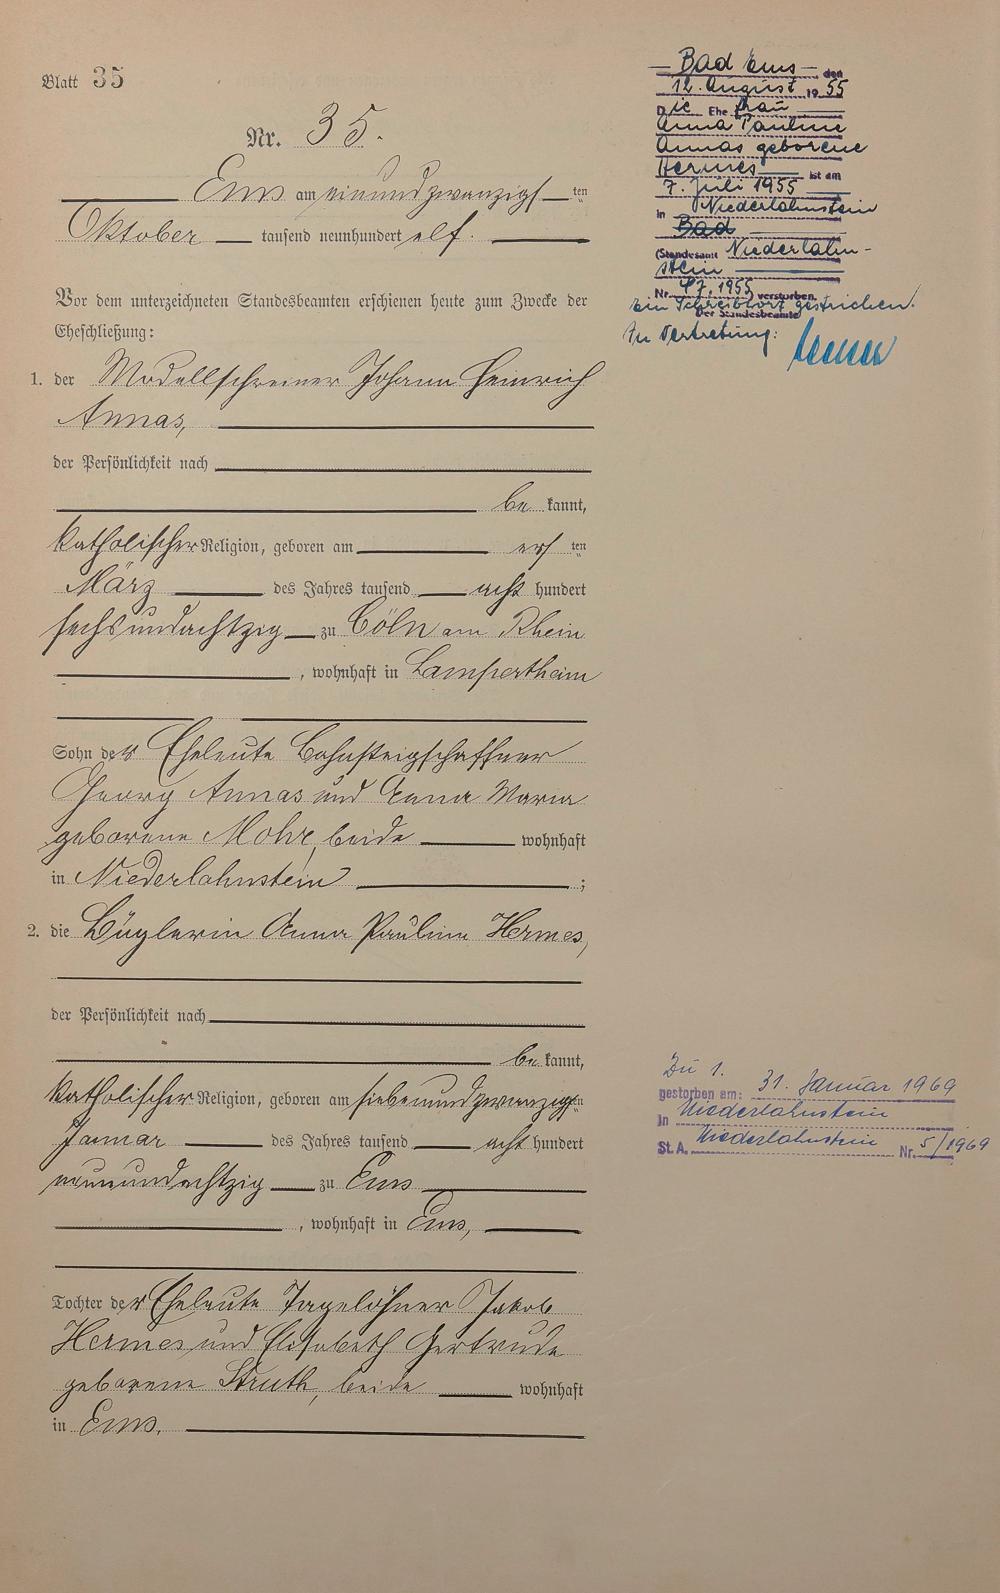 Blatt 35
Nr. 35.
Ems am einundzwanzigsten
Oktober tausend neunhundert elf.
Vor dem unterzeichneten Standesbeamten erschienen heute zum Zwecke der
Eheschließung:
1. der Modellschreiner Johann Heinrich
Annas,
der Persönlichkeit nach
be kannt,
katholischer Religion, geboren am ersten
März des Jahres tausend acht hundert
sechsundachtzig zu Cöln am Rhein
, wohnhaft in Lampertheim
Sohn der Eheleute Bahnsteigschaffner
Georg Annas und Anna Maria
geborene Mohr, beide wohnhaft
in Niederlahnstein ;
2. die Büglerin Anna Pauline Hermes,
der Persönlichkeit nach
be kannt,
katholischer Religion, geboren am siebenundzwanzigsten
Januar des Jahres tausend acht hundert
neunundachtzig zu Ems
, wohnhaft in Ems,
Tochter der Eheleute Tagelöhner Jakob
Hermes und Elisabeth Gertrude
geborene Struth, beide wohnhaft
in Ems.
Bad Ems den
12. August 1955
Die Ehefrau
Anna Pauline
Annas geborene
Hermes ist am
7. Juli 1955
in Niederlahnstein
Bad
(Standesamt Niederlahn-
stein
Nr. 47, 1955) verstorben.
Ein Schreibwort gestrichen.
Der Standesbeamte
In Vertretung:
Zu 1.
gestorben am: 31. Januar 1969
in Niederlahnstein
St. A. Niederlahnstein Nr. 5/1969